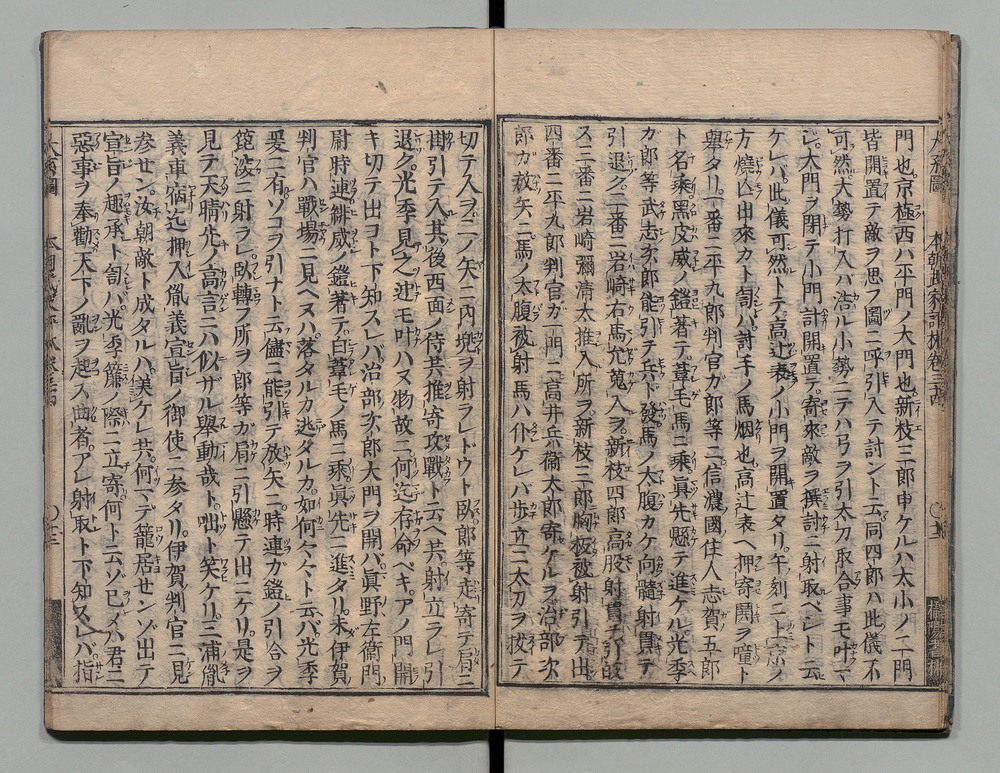 門也京極西ハ平門ノ大門也新枝三郎申ケルハ太小ノ二門
皆開置テ敵ヲ思フ圖ニ呼引入テ討ント云同四郎ハ此儀不
可然大勢打入バ浩ル小勢ニテハ弓ヲ引太刀取合事モ叶マ
シ大門ヲ閉テ小門計開置テ寄來敵ヲ撰討ニ射取ベシト云
ケレバ此儀可然トテ高辻表ノ小門ヲ開置タリ午刻ニ上京ノ
方燒亡出來カト訇バ討手ノ馬烟也高辻表ヘ押寄鬨ヲ噇ト
擧タリ一番ニ平九郎判官カ郎等ニ信濃國住人志賀五郎
ト名乘黑皮威ノ鎧著テ葦毛馬ニ乘眞先懸テ進ケル光季
カ郎等武志次郎能引テ兵ド發馬ノ太腹カケ向髓射貫テ
引退ク二番ニ岩崎右馬允蒐入ヲ新枝四郎高股射貫テ引
ス三番ニ岩崎彌清太推入所ヲ新枝三郎胸板被射引テ出
四番ニ平九郎判官ガ一門ニ高井兵衞太郎寄ケルヲ治部次
郎ガ放矢ニ馬ノ太腹被射馬ハ仆ケレバ歩立ニ太刀ヲ抜テ
切テ入ヲ二ノ矢ニ内兜ヲ射ラレトウト臥郎等走寄テ肩ニ
掛引テ入其後西面ノ侍共推寄攻戰ト云ヘ共射立ラレ引
退ク光季見之迚モ叶ハヌ物故ニ何迄存命ベキアノ門開
キ切テ出ヨト下知スレバ治部次郎大門ヲ開バ眞野左衞門
尉時連緋威ノ鎧著テ白葦毛ノ馬ニ乘眞先ニ進タリ末伊賀
判官ハ戰場ニ見ヘヌハ落タルカ逃タルカ如何々々ト云バ光季
爰ニ有ソコヲ引ナト云儘ニ能引テ放矢ニ時連カ鎧ノ引合ヲ
箆深ニ射ラレ臥轉フ所ヲ郎等ガ肩ニ引懸テ出ニケリ是ヲ
見テ天晴先ノ高言ニハ似ザル擧動哉ト咄ト笑ケリ三浦胤
義車宿迄押入胤義宣旨ノ御使ニ参タリ伊賀判官ニ見
参セン汝朝敵ト成タルハ美ケレ共何マデ籠居センゾ出テ
宣旨ノ趣承ト訇バ光季簾ノ際ニ立寄何ト云ゾ己メハ君ニ
惡事ヲ奉勸天下ノ亂ヲ起ス曲者アレ射取ト下知スレバ指